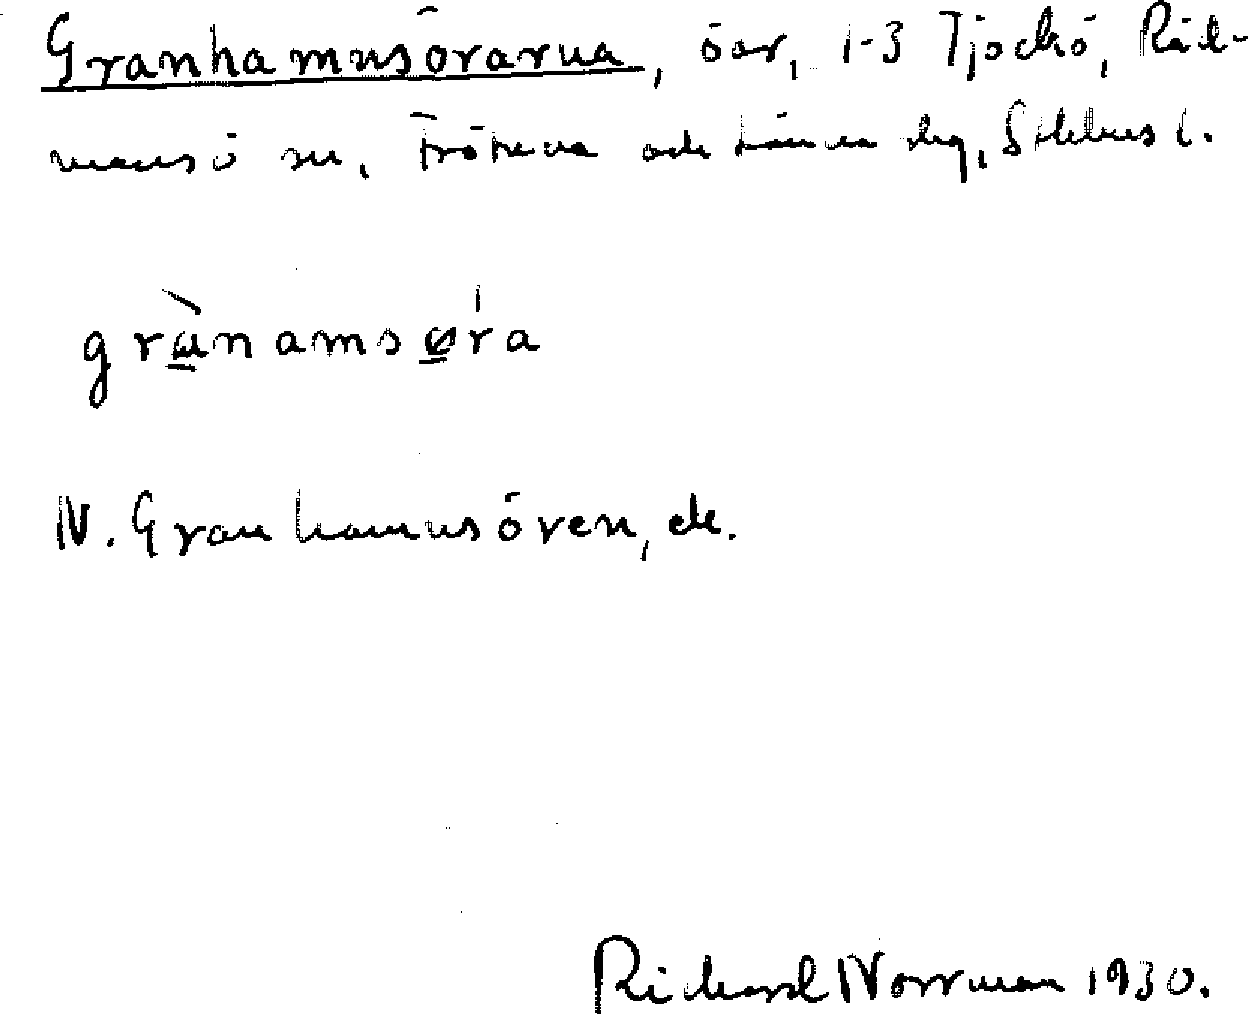 Granhamnsörarna, öar, 1-3 Tjockö, Råd-
mansö sn, Frötuna och Länna skg, Sthlms l.
grànamsøŕa
N. Granhamnsören, etc.
Richard Norrman 1930.